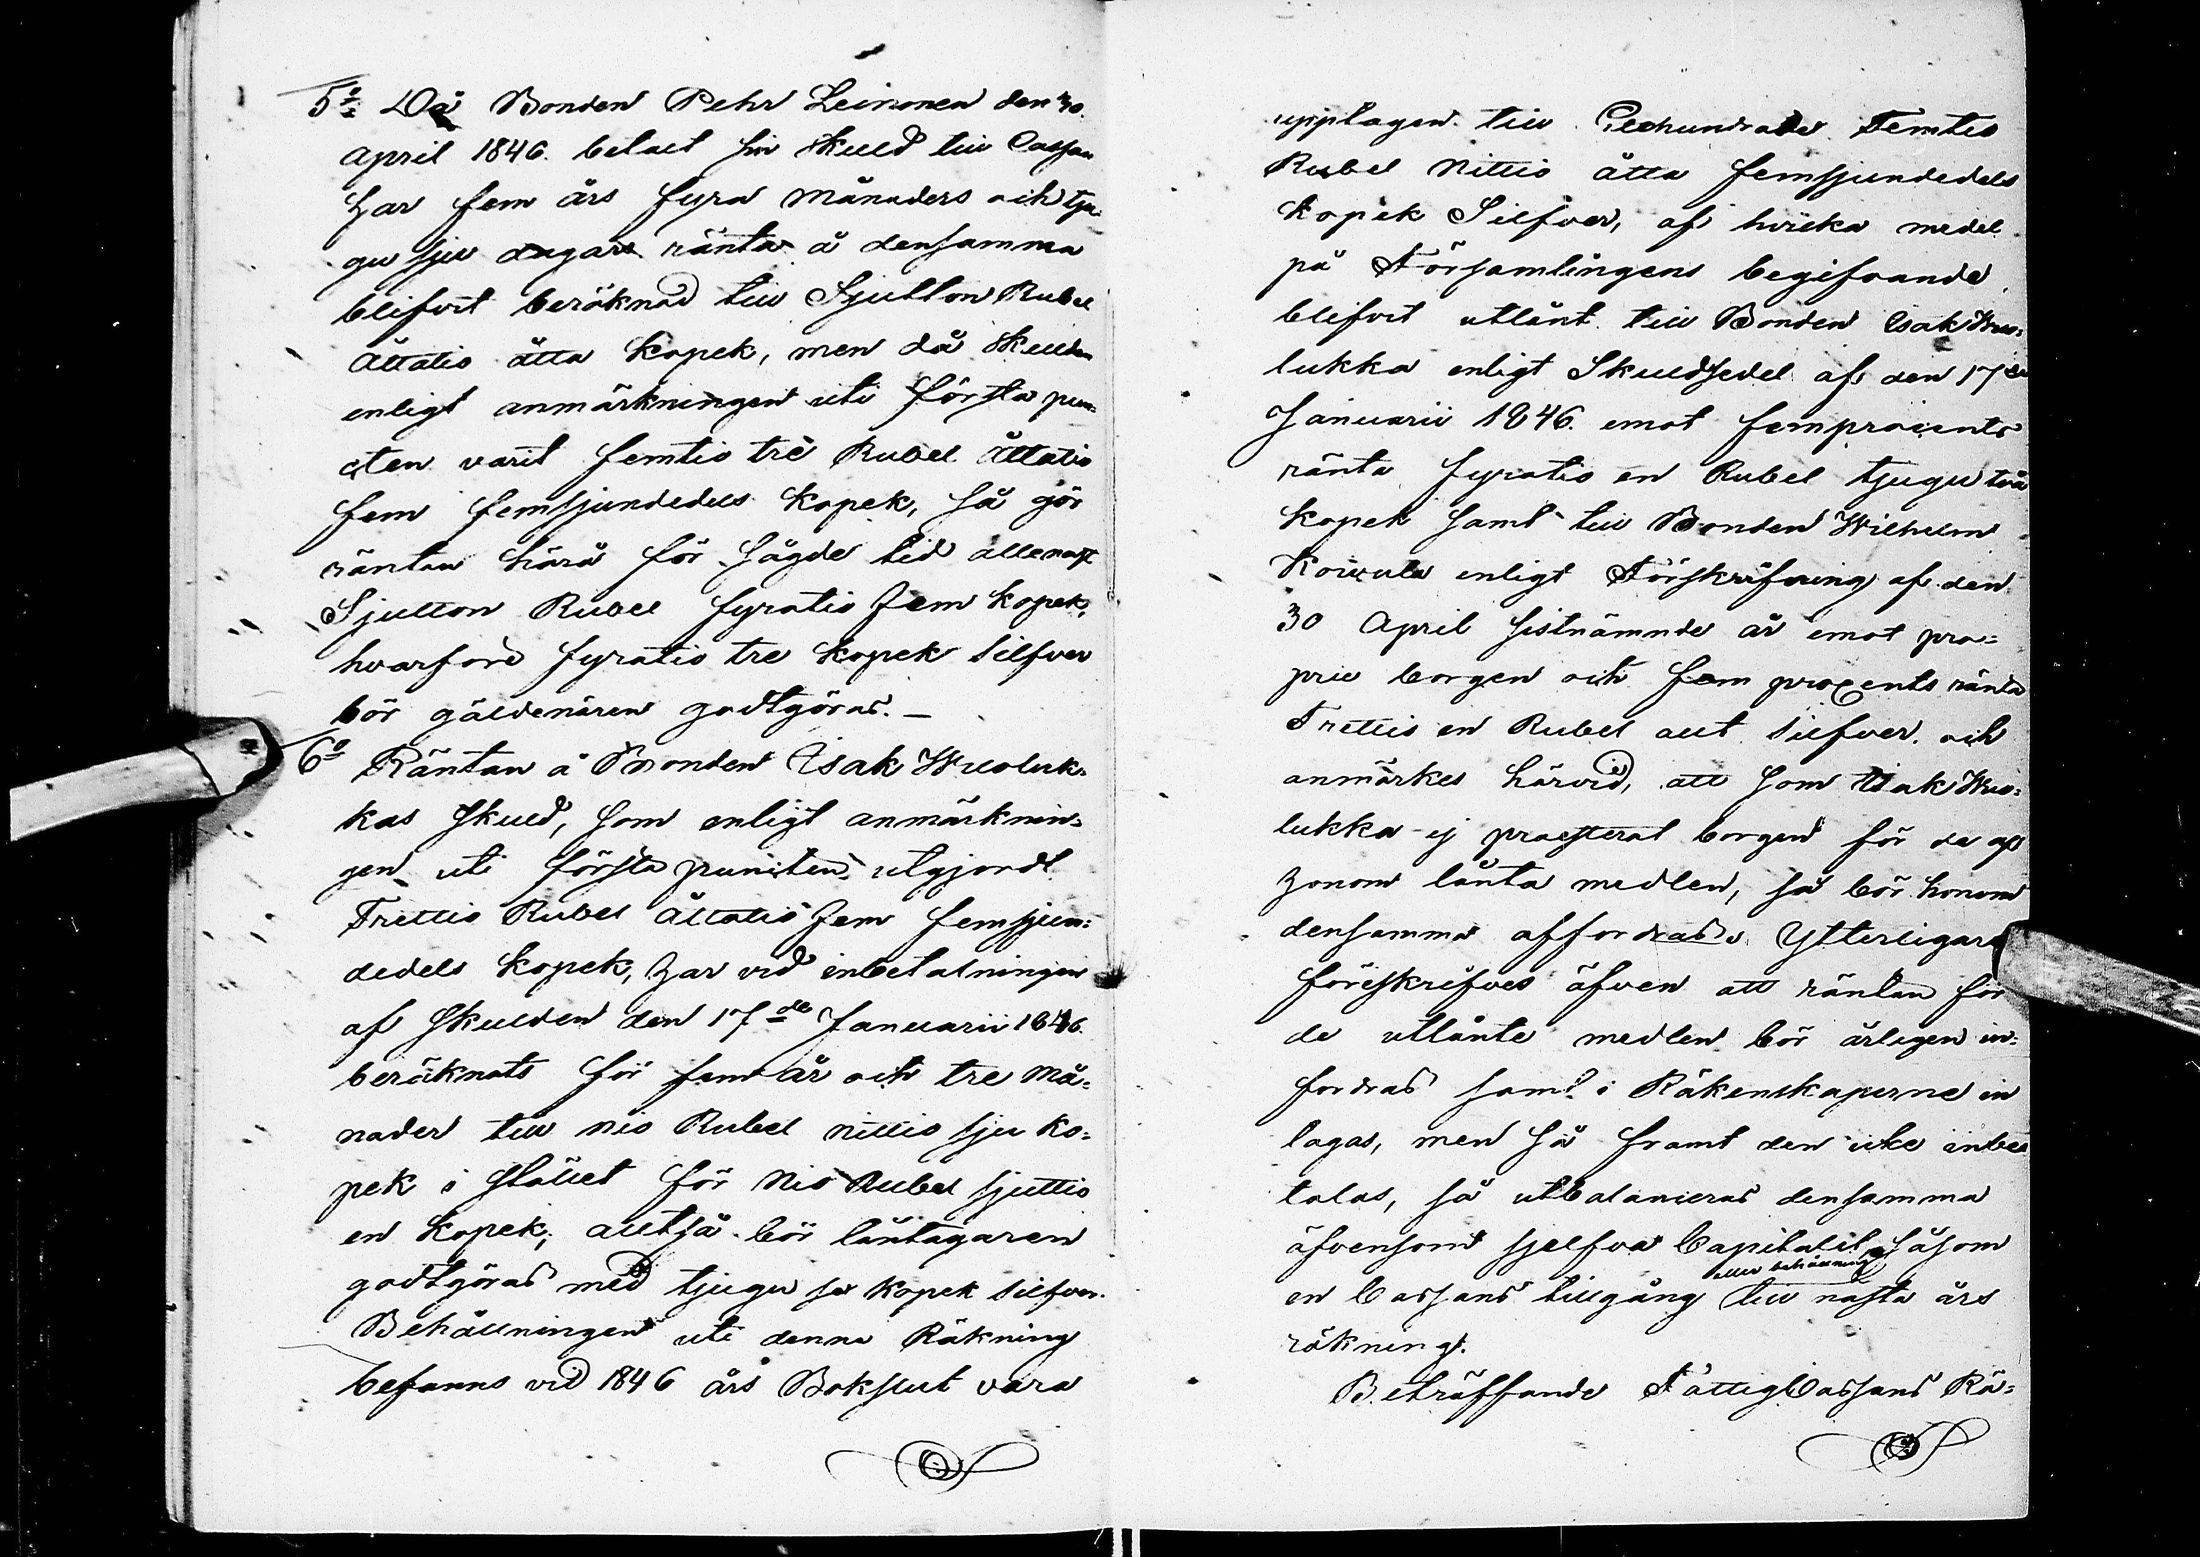 5o Då Bonden Pehr Leinonen den 30.
April 1846. betalt sin skuld till Cassan
har fem års fyra månaders och tju-
gu sju dagars ränta å densamma
blifvit beräknad till Sjutton Rubel
Åttatio åtta kopek, men då skulden
enligt anmärkningen uti första pun-
cten varit femtio tre Rubel Åttatio
fem femsjundedels kopek, så gör
räntan härå för sagde tid allenast
Sjutton Rubel fyratio fem kopek,
hvarföre fyratio tre kopek silfver
bör gäldenären godtgöras. –
6o Räntan å Bonden Isak Wuoluk-
kas skuld, som enligt anmärknin-
gen uti första puncten utgjordt
Trettio Rubel Åttatio fem femsjun-
dedels kopek, har vid inbetalningen
af skulden den 17de Januarii 1846.
beräknats för fem år och tre må-
nader till nio Rubel nittio sju ko-
pek i stället för nio Rubel sjuttio
en kopek; alltså bör låntagaren
godtgöras med tjugu sex kopek silfver.
Behållningen uti denna Räkning
befanns vid 1846 års Bokslut vara
upptagen till Etthundrade Femtio
Rubel Nittio åtta femsjundedels
kopek Silfver, af hvilka medel
på Församlingens begifvande
blifvit utlånt till Bonden Isak Wuo-
lukka enligt Skuldsedel af den 17de
Januarii 1846. emot femprocents
ränta fyratio en Rubel tjugu två
kopek samt till Bonden Wilhelm
Koivula enligt Förskrifning af den
30 April sistnämnde år emot pro-
prie borgen och fem procents ränta
Trettio en Rubel allt silfver. och
anmärkes härvid, att som Isak Wuo-
lukka ej praesterat borgen för de af
honom lånta medlen, så bör honom
densamma affordras. Ytterligare
föreskrifves äfven att räntan för
de utlånte medlen bör årligen in-
fordras samt i Räkenskaperne in
tagas, men så framt den icke inbe
talas, så utbalanceras densamma
äfvensom sjelfva Capitalet såsom
en Cassans tillgång eller behållning till nästa års
räkning.
Beträffande Fattig Cassans Rä-